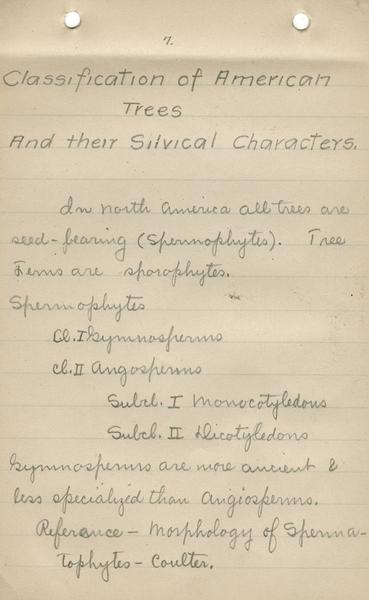 7.
Classification of American
Trees
And their Silvical Characters.
In north America all trees are
seed-bearing (Spermophytes). Tree
Ferns are sporophytes.
Spermophytes
Cl. I Gymnosperms
Cl. II Angosperms
Subcl. I Monocotyledous
Subcl. II Dicotyledons
Gymnosperms are more ancient &
less specialized than Angiosperms.
Reference - Morphology of Sperma-
tophytes - Coulter.